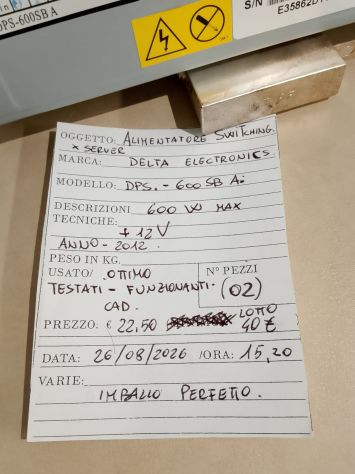 DPS-600SB A
S/N
E35862D1
OGGETTO: ALIMENTATORE SWITCHING.
x SERVER
MARCA: DELTA ELECTRONICS
MODELLO: DPS. - 600 SB A:
DESCRIZIONI 600 W MAX
TECNICHE:
+ 12 V
ANNO - 2012.
PESO IN KG.
USATO/ .OTTIMO
Nº PEZZI
TESTATI - FUNZIONANTI.
(02)
CAD.
PREZZO: € 22,50 LOTTO 40 €
DATA: 26/08/2026 /ORA: 15,20
VARIE:
IMBALLO PERFETTO.